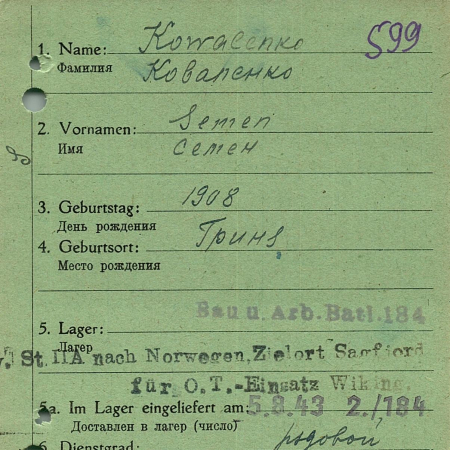 599
1. Name: Kowalenko
Фамилия Коваленко
2. Vornamen: Semen
Имя Семен
3. Geburtstag: 1908
День рождения
4. Geburtsort: Гриня
Место рождения
Bau u. Arb. Batl. 184
5. Lager:
Лагер
v. St. IIA nach Norwegen, Zielort Sagfjord
für O.T.-Einsatz Wiking.
5a. Im Lager eingeliefert am: 5.8.43 2./184
Доставлен в лагер (число)
6. Dienstgrad: рядовой